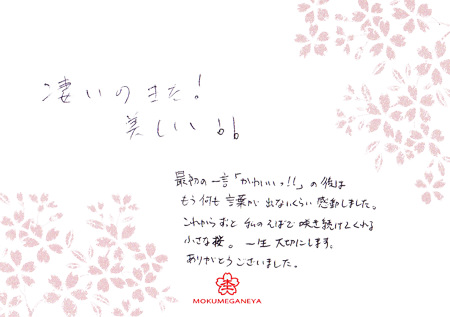 凄いのきた!
美しい♭♭
最初の一言「かわいいっ!!」の後は
もう何も言葉が出ないくらい感動しました。
これからずっと私のそばで咲き続けてくれる
小さな桜。一生大切にします。
ありがとうございました。
杢
MOKUMEGANEYA